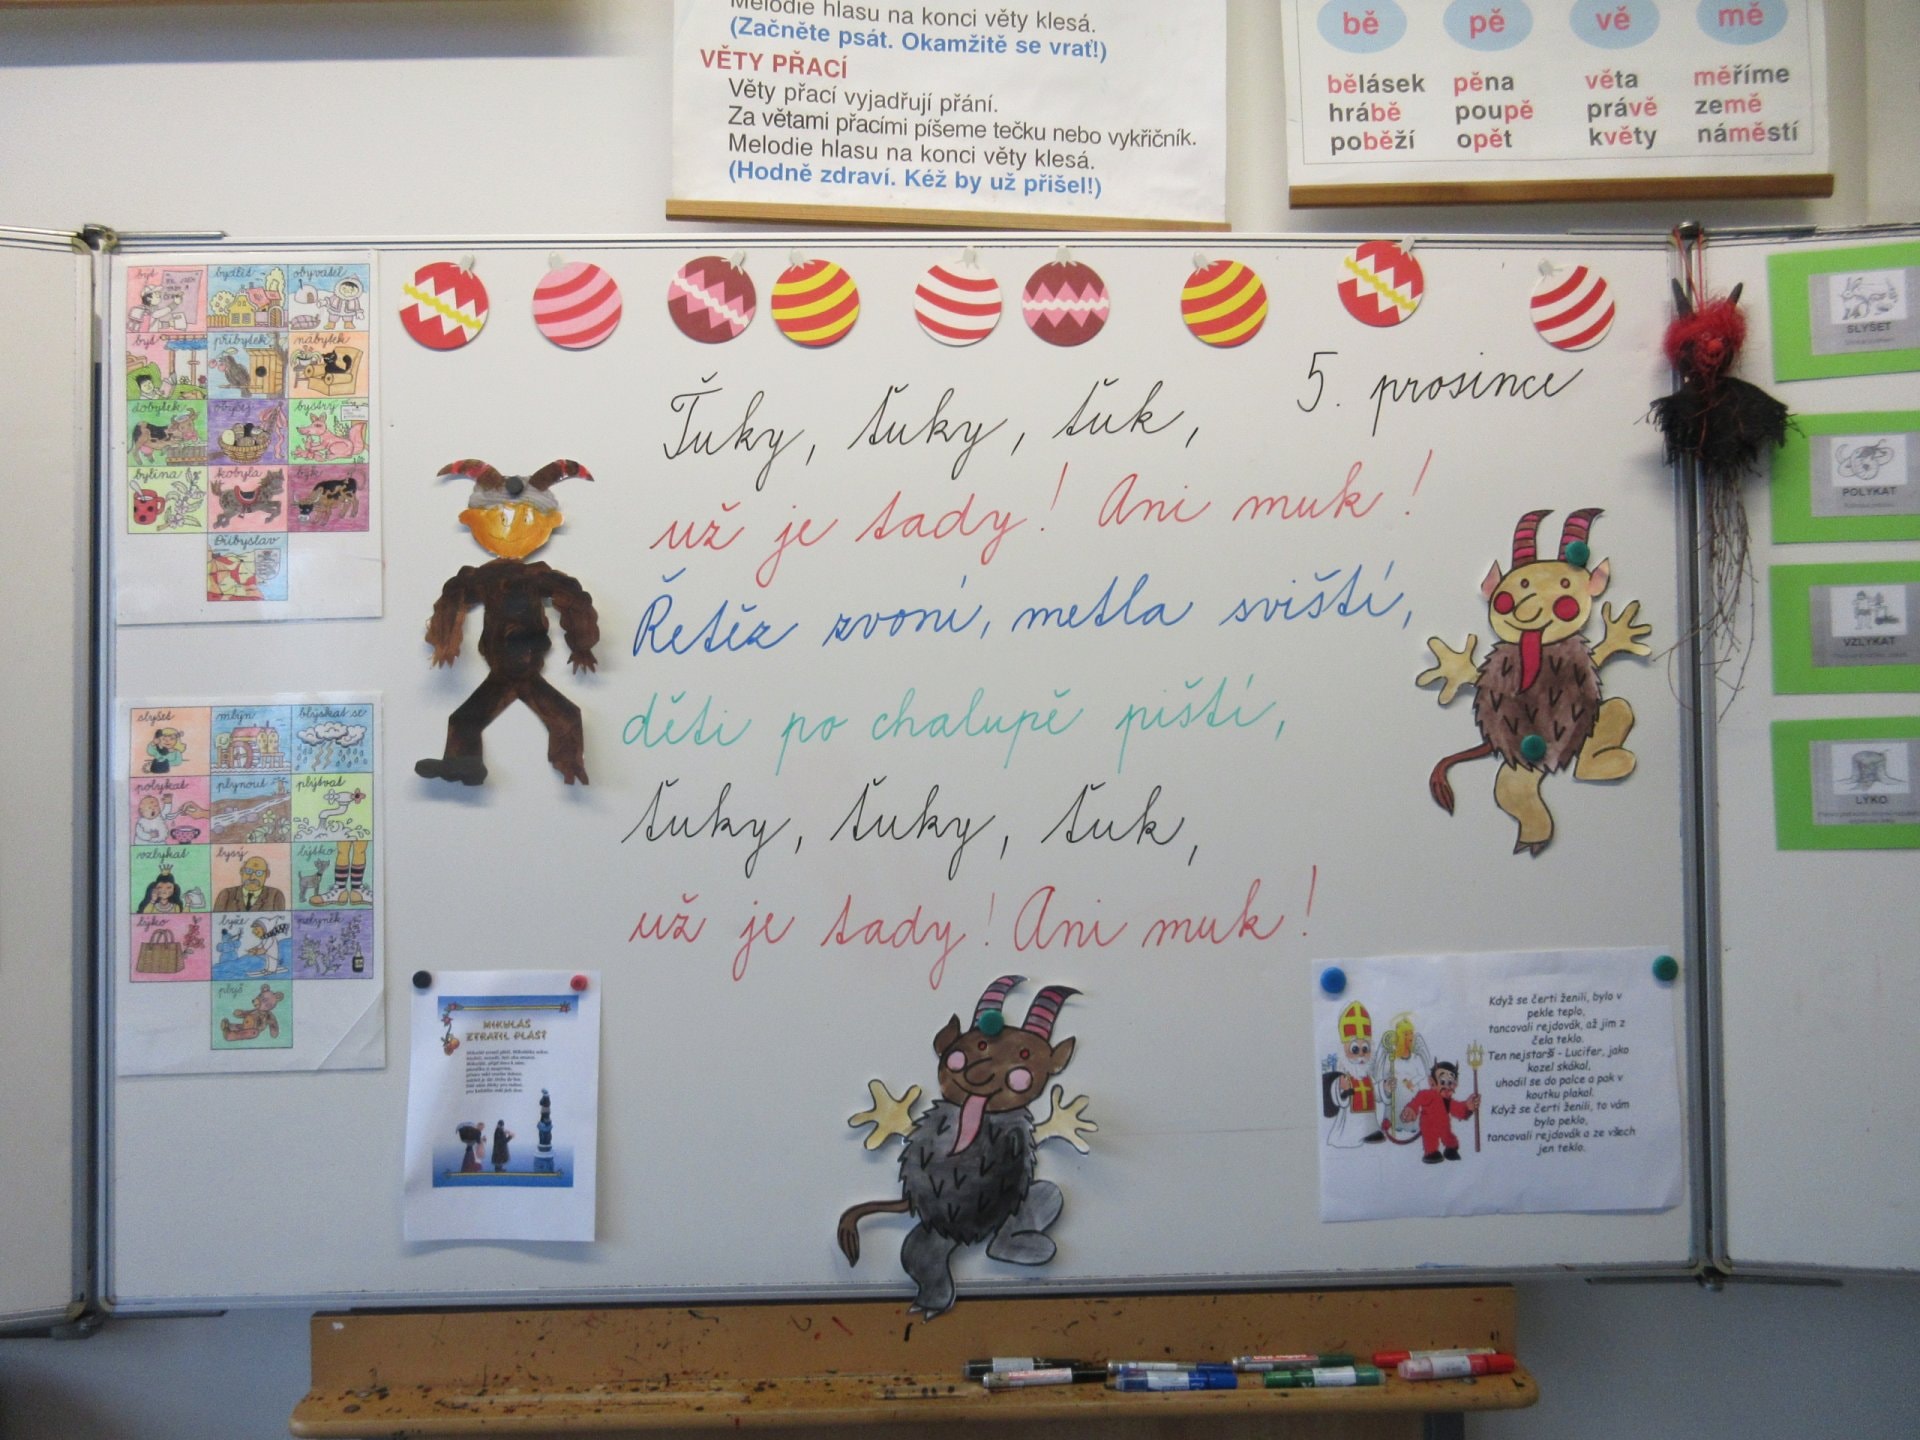 Melodie hlasu na konci věty klesá.
(Začněte psát. Okamžitě se vrať!)
VĚTY PŘACÍ
Věty přací vyjadřují přání.
Za větami přacími píšeme tečku nebo vykřičník.
Melodie hlasu na konci věty klesá.
(Hodně zdraví. Kéž by už přišel!)
bě pě vě mě
bělásek pěna věta měříme
hrábě poupě právě země
poběží opět květy náměstí
5. prosince
Ťuky, ťuky, ťuk,
už je tady! Ani muk!
Řetěz zvoní, metla sviští,
děti po chalupě piští,
ťuky, ťuky, ťuk,
už je tady! Ani muk!
být bydlit obyvatel
byt příbytek nábytek
dobytek obyčej bystrý
bylina kobyla býk
Přibyslav
slyšet mlýn blýskat se
polykat plynout plýtvat
vzlykat lysý lýtko
lýko lyže pelyněk
plyš
MIKULÁŠ
ZTRATIL PLÁŠŤ
Když se čerti ženili, bylo v
pekle teplo,
tancovali rejdovák, až jim z
čela teklo.
Ten nejstarší - Lucifer, jako
kozel skákal,
uhodil se do palce a pak v
koutku plakal.
Když se čerti ženili, to vám
bylo peklo,
tancovali rejdovák a ze všech
jen teklo.
SLYŠET
POLYKAT
VZLYKAT
LYKO